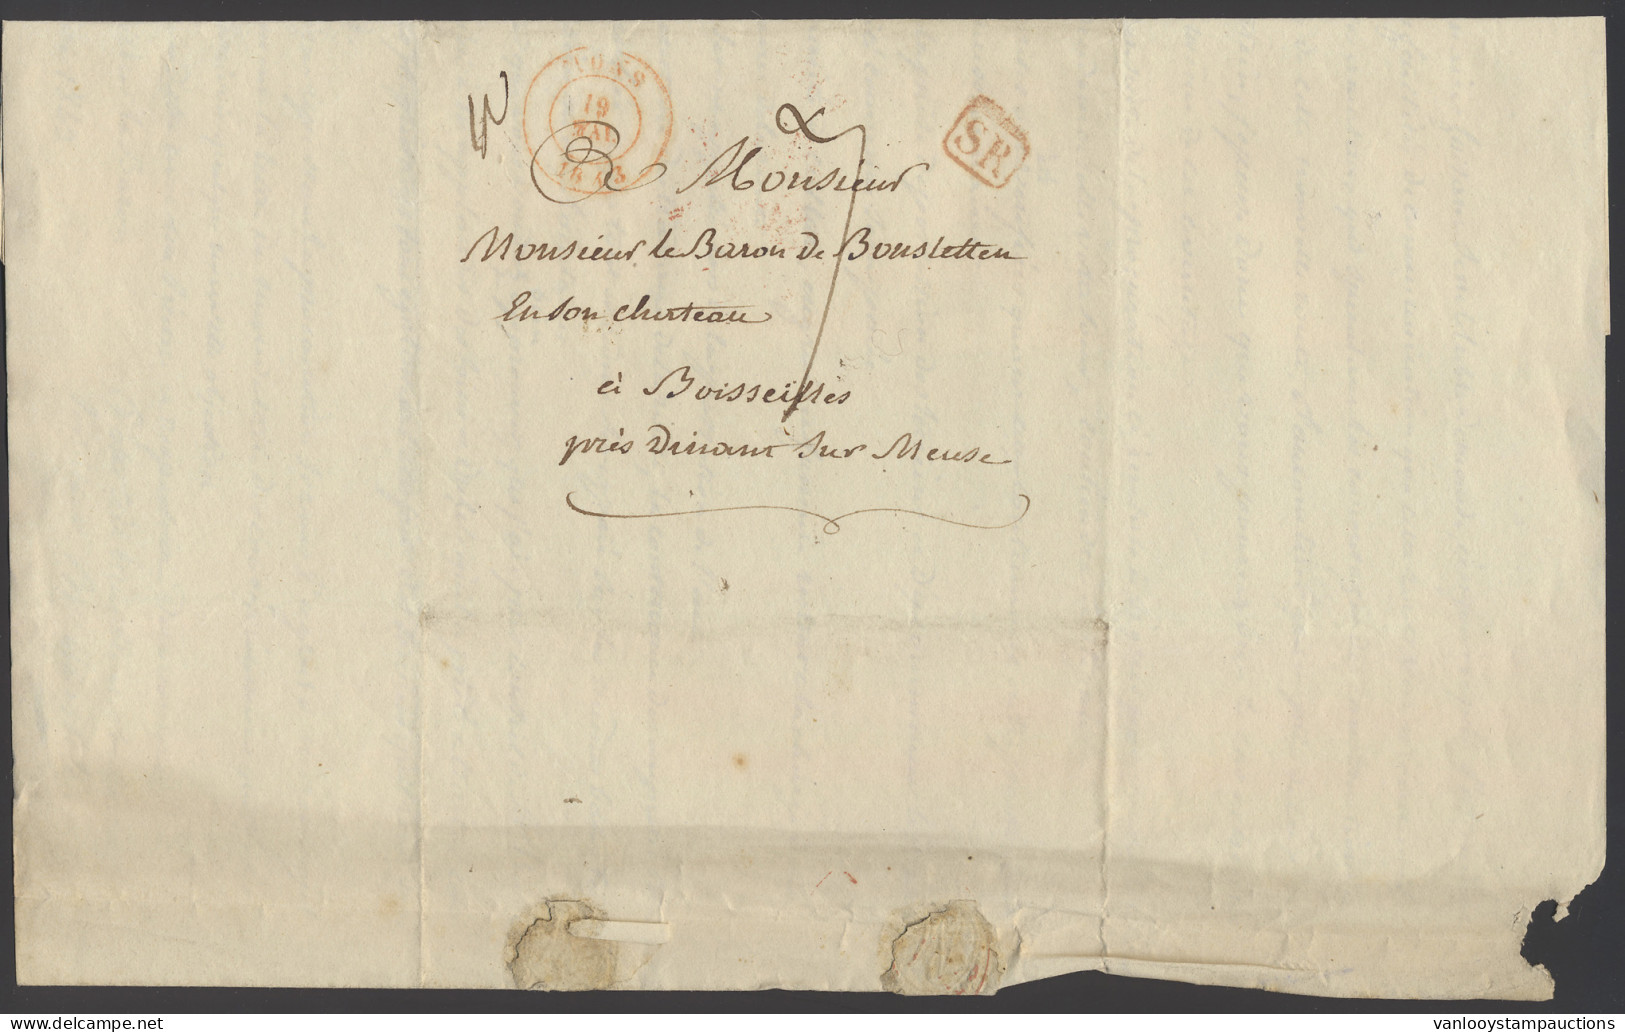 MONS
19
MAI
1843
SR
A Monsieur
Monsieur le Baron de Bonstetten
En son chateau
à Boisseilles
près Dinant Sur Meuse
vanlooystampauctions.com